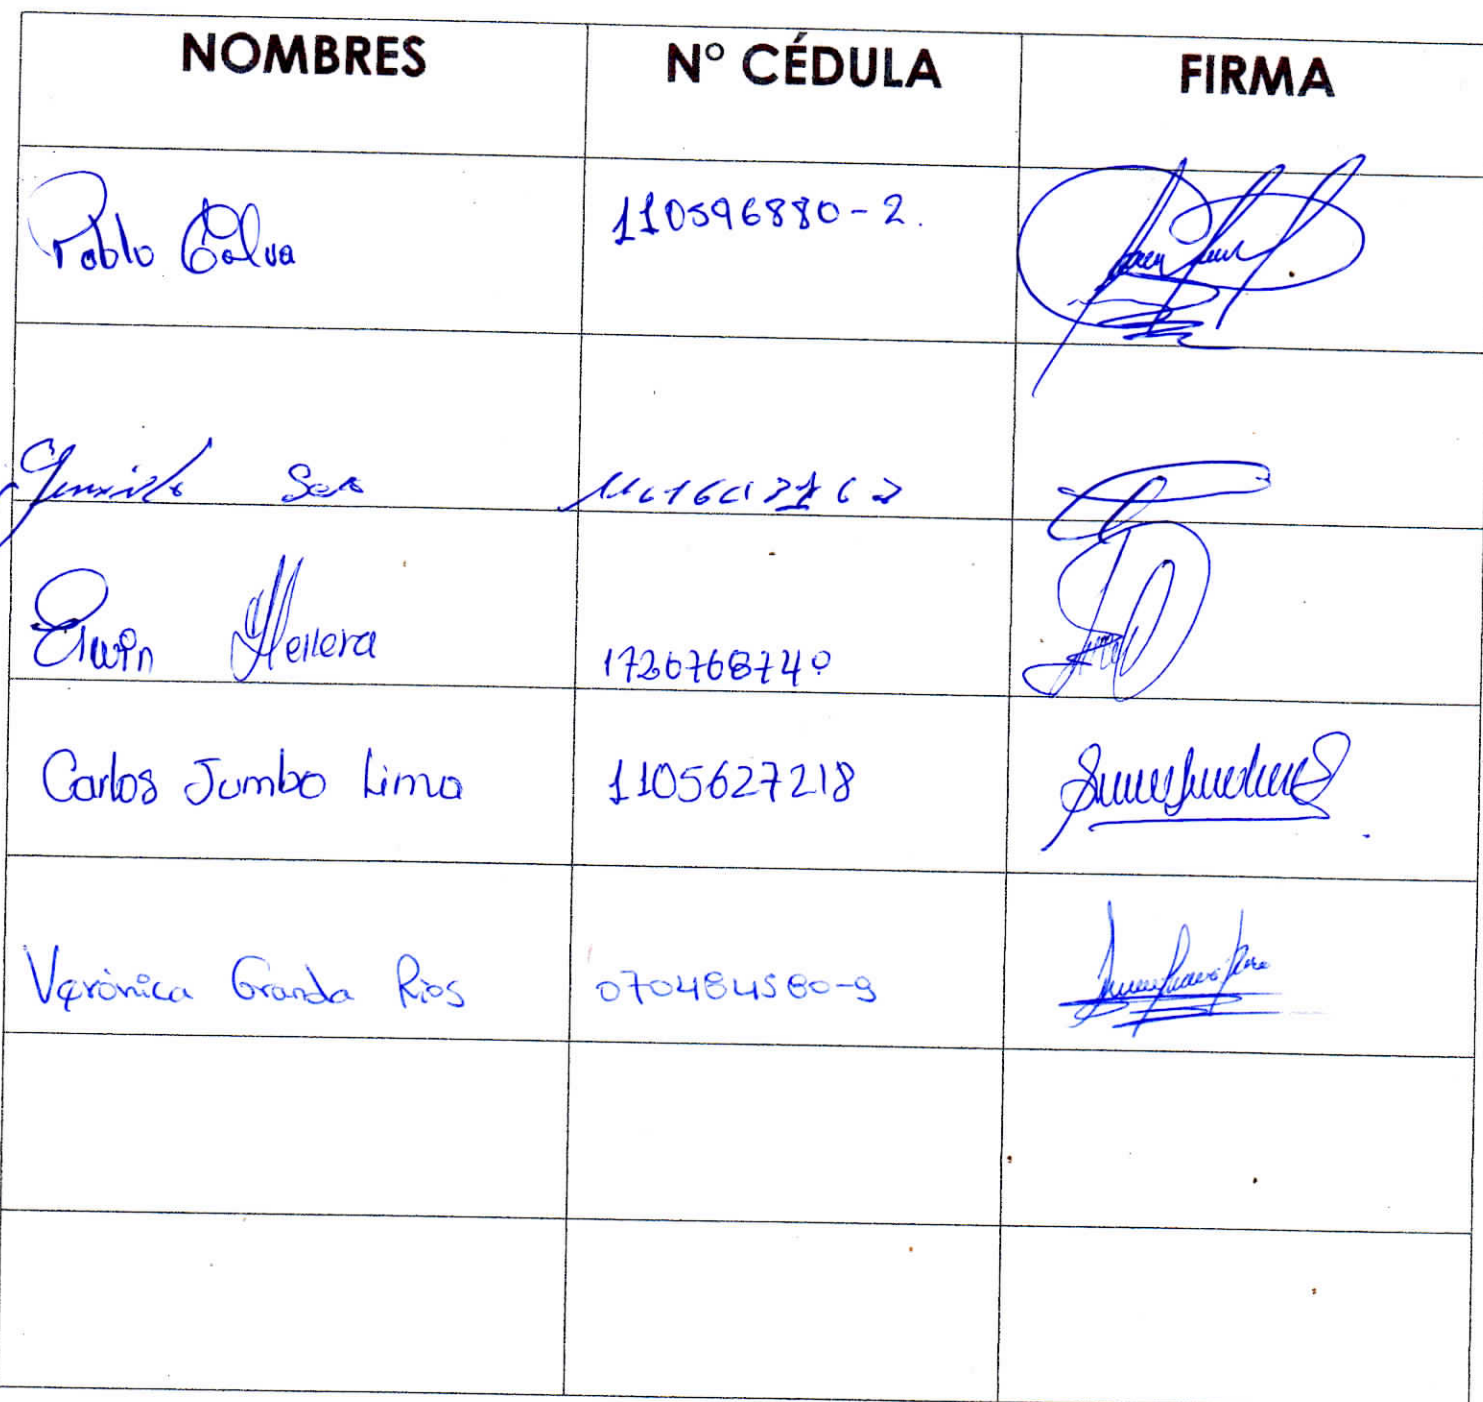 NOMBRES N° CÉDULA FIRMA
Pablo Calva 110596880-2.
Erwin Herrera 1726768740
Carlos Jumbo Lima 1105627218
Verónica Granda Rios 070484580-9